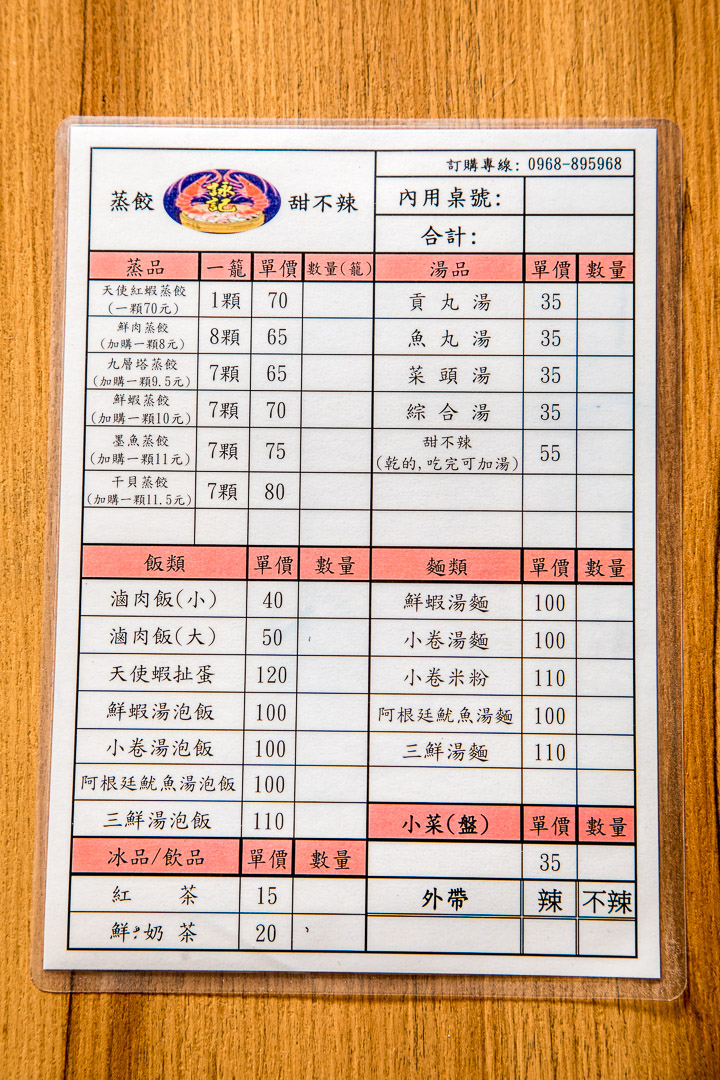 訂購專線: 0968-895968
蒸餃 詠記 甜不辣
內用桌號:
合計:
蒸品 一籠 單價 數量(籠)
天使紅蝦蒸餃
(一顆70元) 1顆 70
鮮肉蒸餃
(加購一顆8元) 8顆 65
九層塔蒸餃
(加購一顆9.5元) 7顆 65
鮮蝦蒸餃
(加購一顆10元) 7顆 70
墨魚蒸餃
(加購一顆11元) 7顆 75
干貝蒸餃
(加購一顆11.5元) 7顆 80
湯品 單價 數量
貢丸湯 35
魚丸湯 35
菜頭湯 35
綜合湯 35
甜不辣
(乾的,吃完可加湯) 55
飯類 單價 數量
滷肉飯(小) 40
滷肉飯(大) 50
天使蝦扯蛋 120
鮮蝦湯泡飯 100
小卷湯泡飯 100
阿根廷魷魚湯泡飯 100
三鮮湯泡飯 110
麵類 單價 數量
鮮蝦湯麵 100
小卷湯麵 100
小卷米粉 110
阿根廷魷魚湯麵 100
三鮮湯麵 110
小菜(盤) 單價 數量
35
冰品/飲品 單價 數量
紅 茶 15
鮮奶茶 20
外帶 辣 不辣